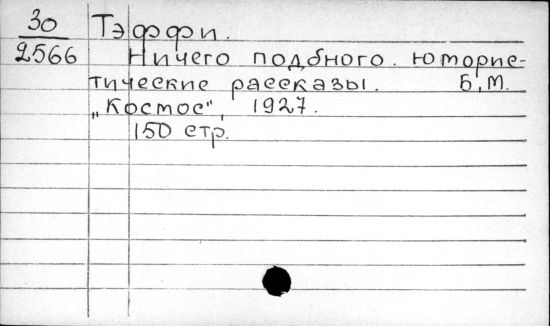 30 Тэффи.
2566 Ничего подбного. Юторис-
тические рассказы. Б.М.
„Костос", 1927.
150 стр.